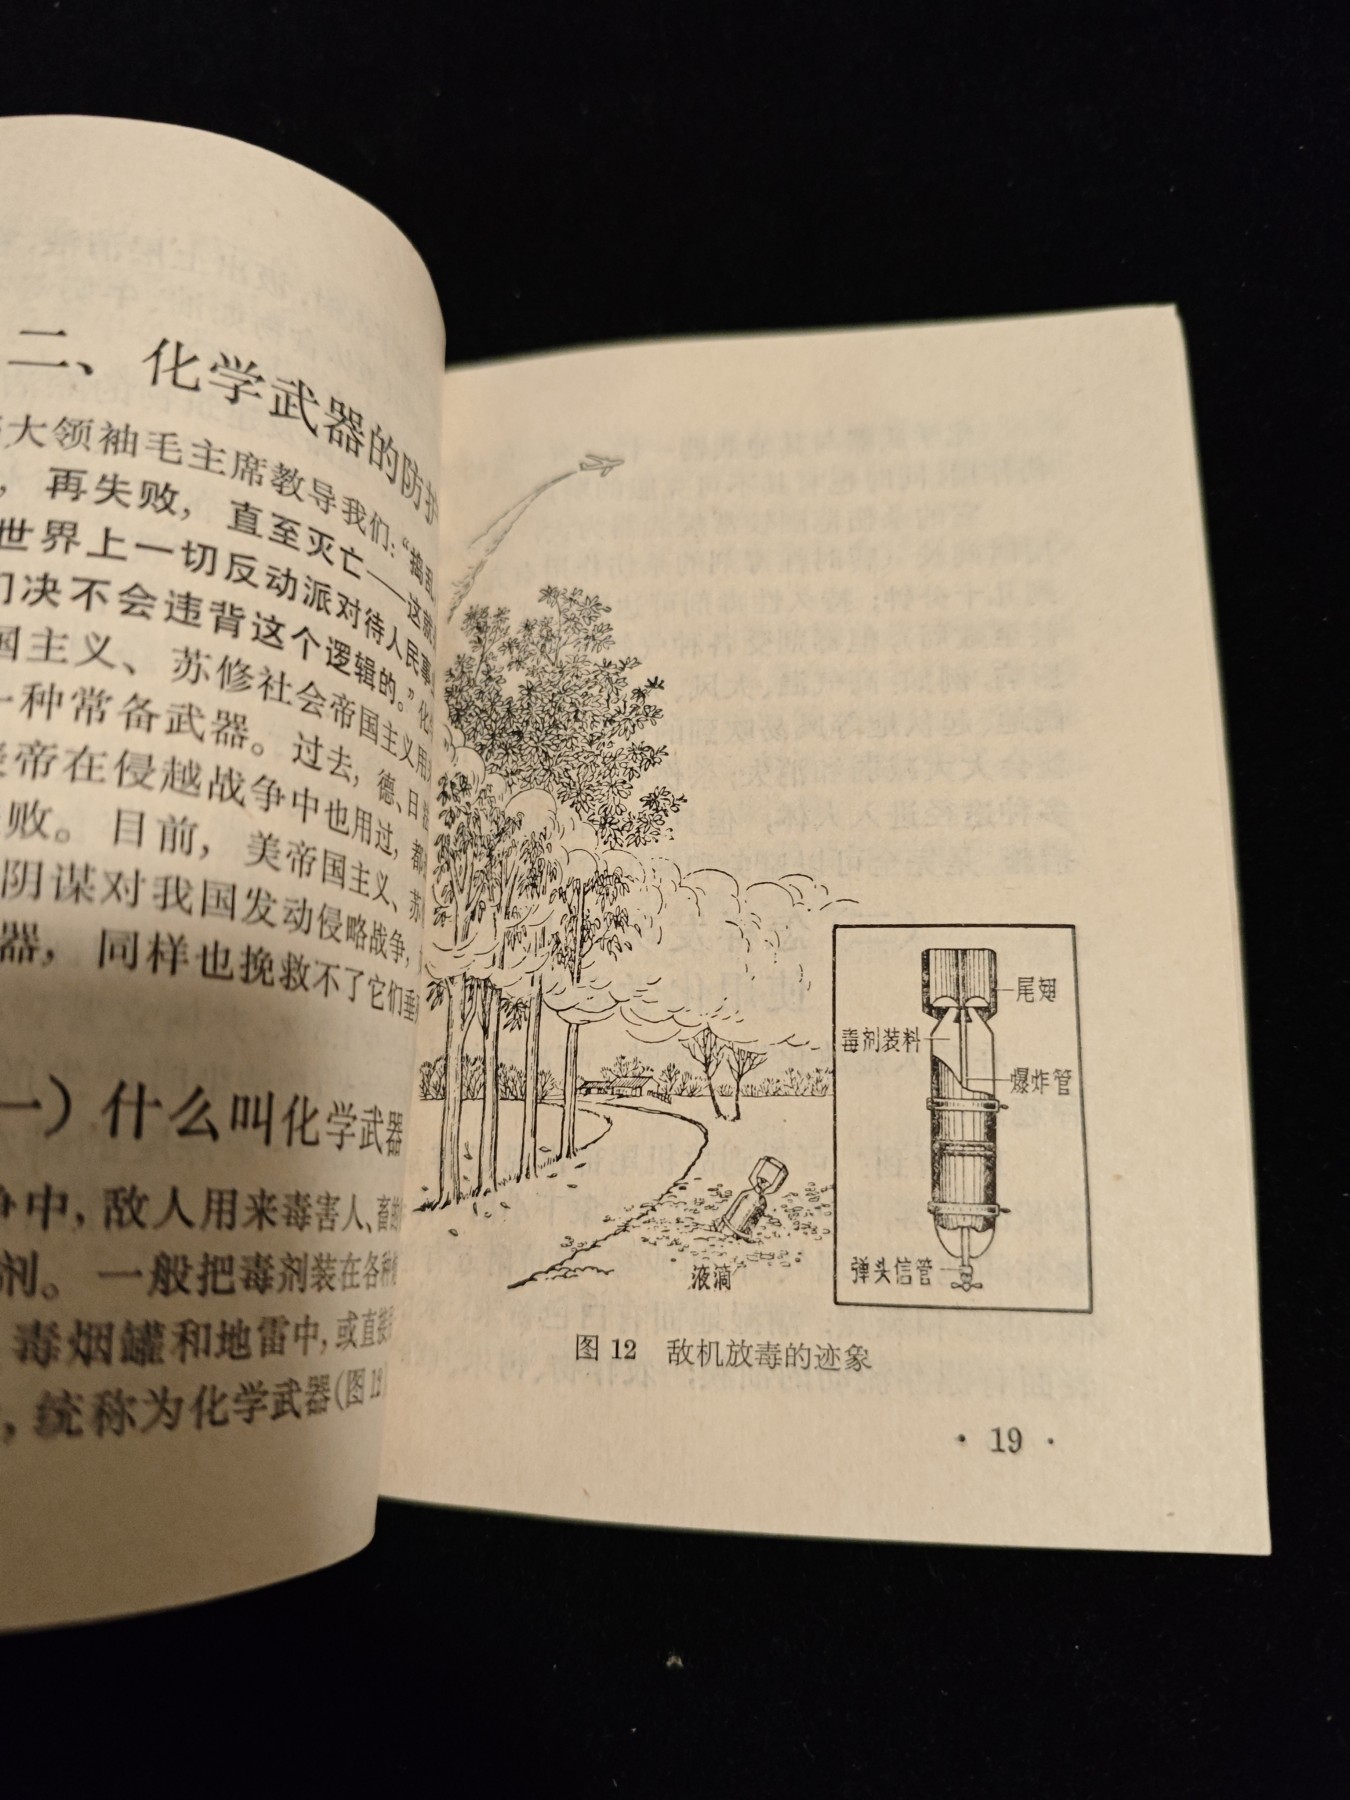 二、化学武器的防护
大领袖毛主席教导我们：“捣乱
，再失败，直至灭亡——这就
世界上一切反动派对待人民事
们决不会违背这个逻辑的。”化
国主义、苏修社会帝国主义用
一种常备武器。过去，德、日
帝在侵越战争中也用过，都
败。目前，美帝国主义、苏
阴谋对我国发动侵略战争，
器，同样也挽救不了它们垂
一）什么叫化学武器
争中，敌人用来毒害人、畜
剂。一般把毒剂装在各种
毒烟罐和地雷中，或直接
，统称为化学武器（图12
尾翅
毒剂装料
爆炸管
弹头信管
液滴
图12 敌机放毒的迹象
· 19 ·